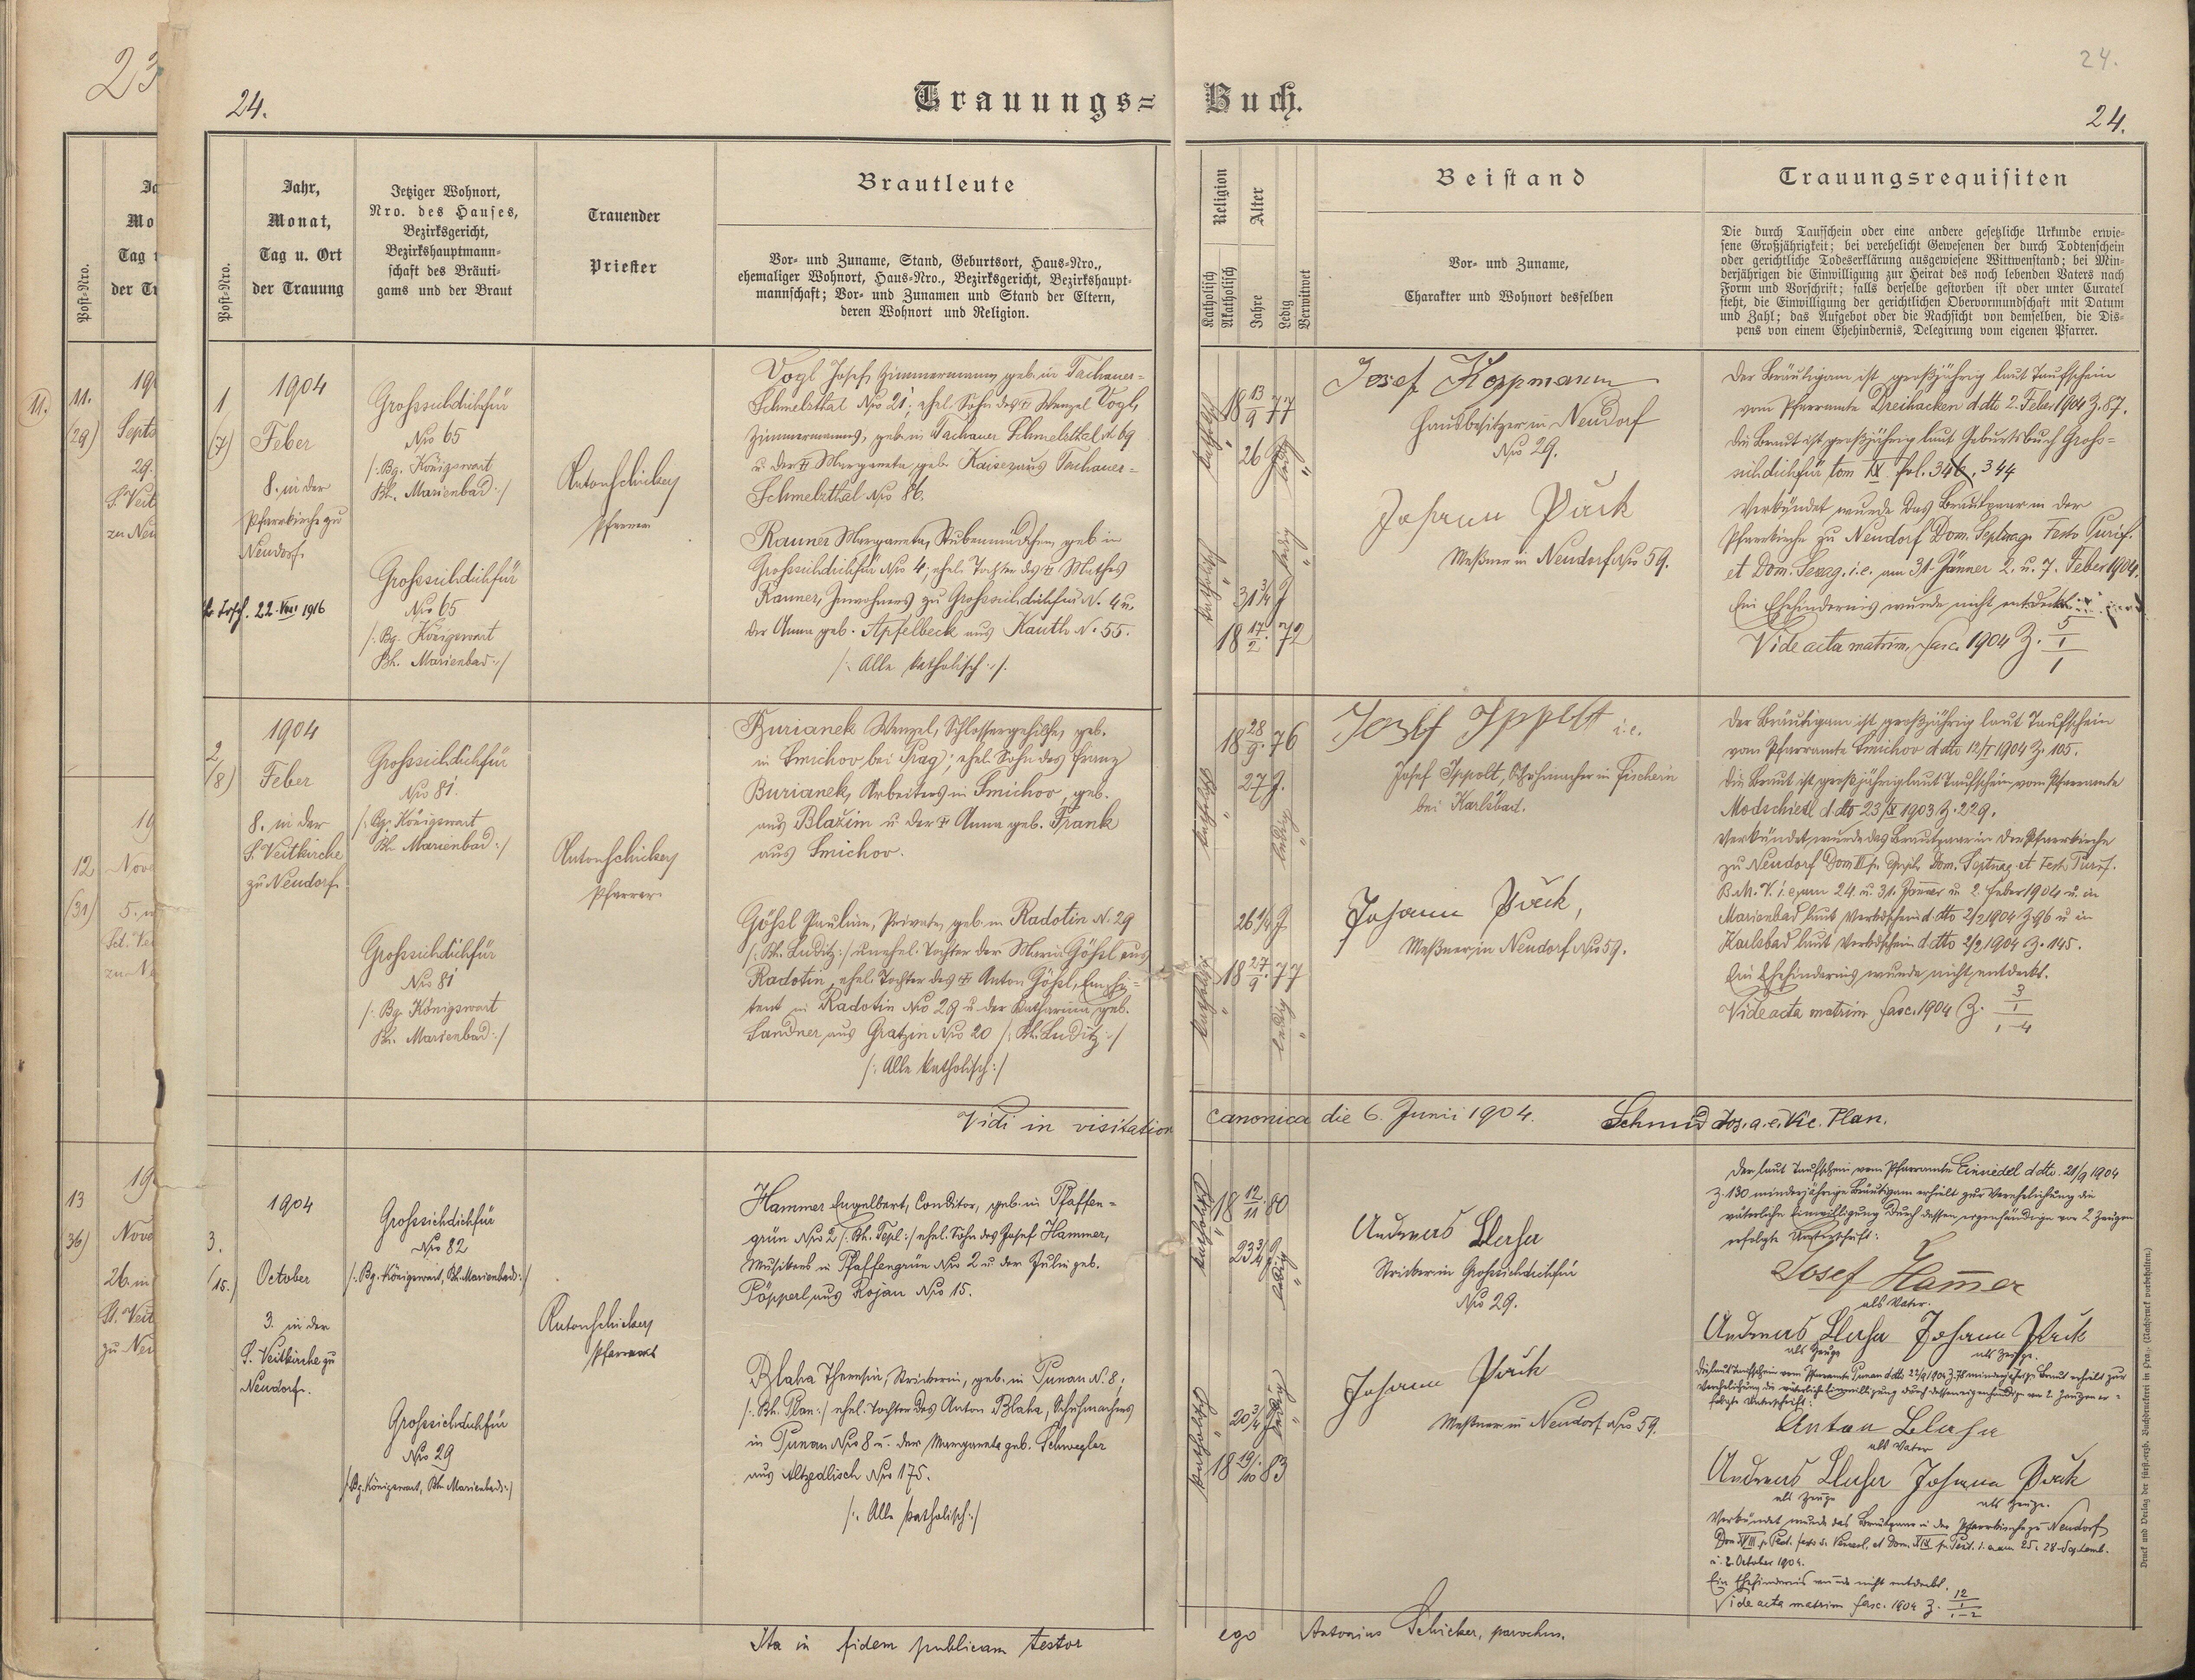 23
24.
Trauungs= Buch.
24.
24.
Post-Nro.
Jahr,
Monat,
Tag u. Ort
der Trauung
Jetziger Wohnort,
Nro. des Hauses,
Bezirksgericht,
Bezirkshauptmann-
schaft des Bräuti-
gams und der Braut
Trauender
Priester
Brautleute
Vor- und Zuname, Stand, Geburtsort, Haus-Nro.,
ehemaliger Wohnort, Haus-Nro., Bezirksgericht, Bezirkshaupt-
mannschaft; Vor- und Zunamen und Stand der Eltern,
deren Wohnort und Religion.
Religion
Katholisch
Akatholisch
Alter
Jahre
Ledig
Verwitwet
Beistand
Vor- und Zuname,
Charakter und Wohnort desselben
Trauungsrequisiten
Die durch Taufschein oder eine andere gesetzliche Urkunde erwie-
sene Großjährigkeit; bei verehelicht Gewesenen der durch Todtenschein
oder gerichtliche Todeserklärung ausgewiesene Wittwenstand; bei Min-
derjährigen die Einwilligung zur Heirat des noch lebenden Vaters nach
Form und Vorschrift; falls derselbe gestorben ist oder unter Curatel
steht, die Einwilligung der gerichtlichen Obervormundschaft mit Datum
und Zahl; das Aufgebot oder die Nachsicht von demselben, die Dis-
pens von einem Ehehindernis, Delegirung vom eigenen Pfarrer.
11.
11.
(29)
Septe
29.
S. Veit
zu Neu
12
(31)
Nove
5.
zu N
13
(36)
Nove
26. in
St. Veit
zu Neu
1
(7)
1904
Feber
8. in der
Pfarrkirche zu
Neudorf.
22. VIII 1916
Grosssichdichfür
Nro 65
/: Bg. Königswart
Bh. Marienbad :/
Grosssichdichfür
Nro 65
/: Bg. Königswart
Bh. Marienbad :/
Anton Schicker
Pfarrer
Vogl Josef, Zimmermann, geb. in Tachauer-
Schmelzthal Nro 21; ehel. Sohn des † Wenzel Vogl,
Zimmermanns, geb. in Tachauer Schmelzthal N 69
u. der † Margareta geb. Kaiser aus Tachauer-
Schmelzthal Nro 86.
Rauner Margareta, Stubenmädchen, geb in
Grosssichdichfür Nro 4; ehel. Tochter des † Mathes
Rauner, Inwohners zu Grosssichdichfür N. 4 u.
der Anna geb. Apfelbeck aus Kauth N. 55.
/: Alle katholisch :/.
katholisch
18 13/9 77
26 J
ledig
katholisch
31 3/4 J
18 17/2 72
ledig
Josef Koppmann
Hausbesitzer in Neudorf
Nro 29.
Johann Pöck
Meßner in Neudorf Nro 59.
Der Bräutigam ist großjährig laut Taufschein
vom Pfarramte Dreihacken ddto 2. Feber 1904 Z. 87.
Die Braut ist großjährig laut Geburtsbuch Gross-
sichdichfür tom IX fol. 346, 344
Verkündet wurde das Brautpaar in der
Pfarrkirche zu Neudorf Dom. Septuag. Festo Purif.
et Dom. Sexag. i.e. am 31. Jänner 2. u. 7. Feber 1904.
Ein Ehehindernis wurde nicht entdeckt
Vide acta matrim. fasc. 1904 Z. 5/1/1
2
(8)
1904
Feber
8. in der
S. Veitkirche
zu Neudorf.
Grosssichdichfür
Nro 81
/: Bg. Königswart
Bh. Marienbad :/
Grosssichdichfür
Nro 81
/: Bg. Königswart
Bh. Marienbad :/
Anton Schicker
Pfarrer
Burianek Wenzel, Schlossergehilfe, geb.
in Smichov bei Prag; ehel. Sohn des Franz
Burianek, Arbeiters in Smichov, geb.
aus Blažim u. der † Anna geb. Frank
aus Smichov.
Gößl Paulina, Private, geb. in Radotin N. 29
/: Bh. Luditz :/ unehel. Tochter der Maria Gößl aus
Radotin, ehel. Tochter des † Anton Gößl,
in Radotin Nro 29 u der Katharina geb.
Landner aus Gratzin Nro 20 /: Bh. Luditz :/
/: Alle katholisch :/
18 28/9 76
27 J.
katholisch
ledig
26 1/4 J
18 27/9 77
katholisch
ledig
Josef Ippolt i.e.
Josef Ippolt, Schuhmacher in Fischern
bei Karlsbad.
Johann Pöck,
Meßner in Neudorf Nro 59.
Der Bräutigam ist großjährig laut Taufschein
vom Pfarramte Smichov ddto 12/I 1904 Z. 105.
Die Braut ist großjährig laut Taufschein vom Pfarramte
Modschiedl ddto 23/IX 1903 Z. 229.
Verkündet wurde das Brautpaar in der Pfarrkirche
zu Neudorf Dom III p. Epiph. Dom. Septuag. et Festo Purif.
B.M.V. i.e. am 24. u. 31. Jänner u 2 Feber 1904 u. in
Marienbad laut Verkdschein ddto 2/2 1904 Z. 96 u in
Karlsbad laut Verkdschein ddto 2/2 1904 Z. 145.
Ein Ehehindernis wurde nicht entdeckt.
Vide acta matrim fasc. 1904 Z. 3/1/1-4
Vidi in visitation canonica die 6. Junii 1904. Schmid Jos. a.e. Vic. Plan.
3.
(15.)
1904
October
3. in der
S. Veitkirche zu
Neudorf.
Grosssichdichfür
Nro 82
/: Bg. Königswart, Bh. Marienbad :/
Grosssichdichfür
Nro 29
/: Bg. Königswart, Bh. Marienbad :/
Anton Schicker
Pfarrer
Hammer Engelbert, Conditor, geb. in Pfaffen-
grün Nro 2 /: Bh. Tepl :/ ehel. Sohn des Josef Hammer,
Musikers in Pfaffengrün Nro 2 u. der Julia geb.
Pöpperl aus Rojan Nro 15.
Blaha Theresia, Strickerin, geb. in Punau N. 8,
/: Bh. Plan :/ ehel. Tochter des Anton Blaha, Schuhmachers
in Punau Nro 8 u. der Margareta geb. Schwegler
aus Altzedlisch Nro 175.
/: Alle katholisch :/
katholisch
18 12/11 80
23 3/4 J
ledig
katholisch
20 3/4 J
ledig
18 19/10 83
Andreas Blaha
Stricker in Grosssichdichfür
Nro 29.
Johann Pöck
Meßner in Neudorf Nro 59.
Der laut Taufschein vom Pfarramte Einsiedel ddto. 21/9 1904
Z. 130 minderjährige Bräutigam erhielt zur Verehelichung die
väterliche Einwilligung durch dessen eigenhändige vor 2 Zeugen
erfolgte Unterschrift:
Josef Ham̄er
als Vater.
Andreas Blaha Johann Pöck
als Zeuge als Zeuge.
Die laut Taufschein vom Pfarramte Punau ddto 22/9 1904 Z. 78 minderjährige Braut erhielt zur
Verehelichung die väterliche Einwilligung durch dessen eigenhändige vor 2 Zeugen er-
folgte Unterschrift:
Anton Blaha
als Vater
Andreas Blaha Johann Pöck
als Zeuge als Zeuge.
Verkündet wurde das Brautpaar in der Pfarrkirche zu Neudorf
Dom XVIII p. Pent. festo s. Wencesl. et Dom. XIX p. Pent. i.e. am 25. 28 Septemb.
u. 2. October 1904.
Ein Ehehindernis wurde nicht entdeckt.
Vide acta matrim fasc. 1904 Z. 12/1/1-2
Ita in fidem publicam testor ego Antonius Schicker, parochus.
Druck und Verlag der fürst-erzb. Buchdruckerei in Prag. (Nachdruck vorbehalten.)